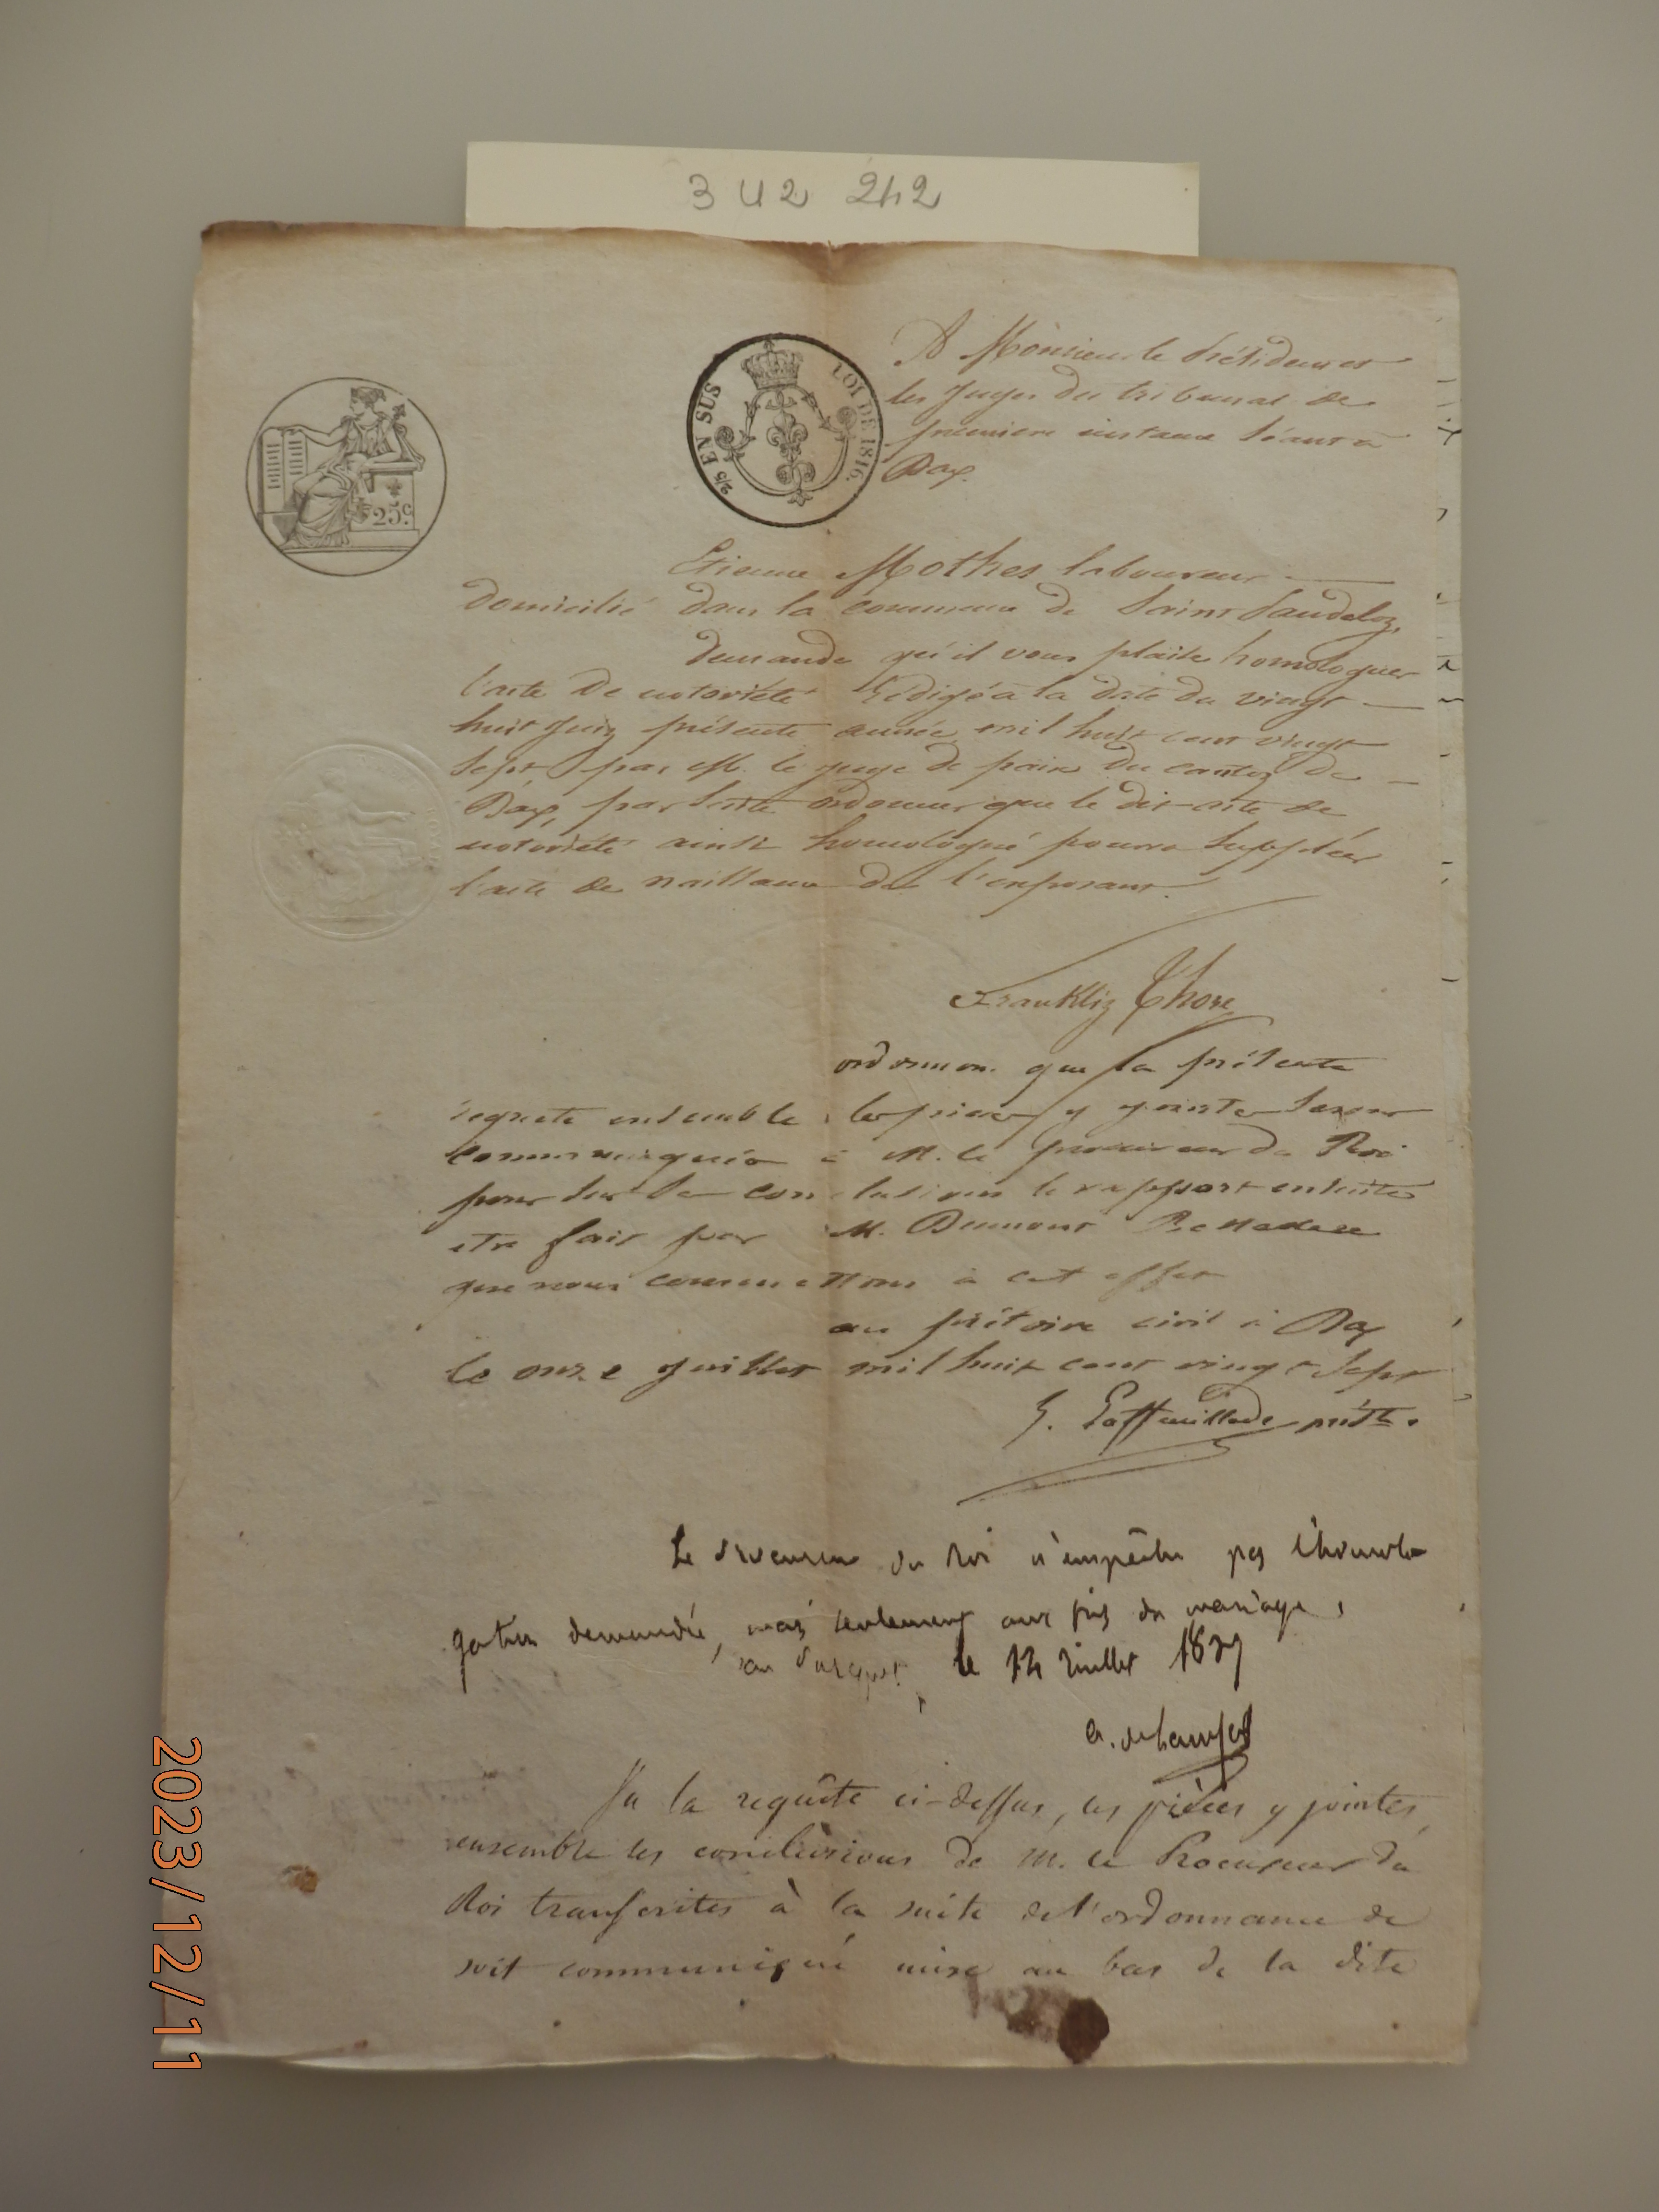 3 U2 242
25c.
2/5 EN SUS
LOI DE 1816.
A Monsieur le Président et
les Juges du tribunal de
premiere instance séant à
Dax.
Etienne Mothes laboureur
domicilié dans la commune de Saint Pandelon,
demande qu'il vous plaise homologuer
l'acte de notoriété rédigé à la date du vingt
huit Juin présente année mil huit cent vingt
sept par M. le juge de paix du canton de
Dax, par suite ordonner que le dit acte de
notoriété ainsi homologué pourra suppléer
l'acte de naissance de l'exposant.
Franklin Thore
ordonnons que la présente
requete ensemble les pieces y jointes seront
communiquées à M. le procureur du Roi
pour sur ses conclusions le rapport ensuite
etre fait par M. Dumont
que nous commettons à cet effet
au prétoire civil à Dax
le onze Juillet mil huit cent vingt sept
Le Procureur du Roi n'empêche pas l'homolo
gation demandée, mais seulement aux fins du mariage,
au Parquet, le 14 Juillet 1827
Vu la requête ci-dessus, les pièces y jointes,
ensemble les conclusions de M. le Procureur du
Roi transcrites à la suite de l'ordonnance de
soit communiqué mise au bas de la dite
2023/12/11